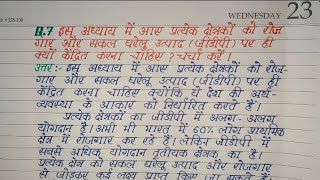 WEDNESDAY 23
Q.7 इस अध्याय में आस प्रत्येक क्षेत्रकों को रोज
गार और सकल घरेलू उत्पाद (जीडीपी) पर ही
क्यों केंद्रित करना चाहिए ? चर्चा करें।
उत्तर:- इस अध्याय में आस प्रत्येक क्षेत्रकों को रोज-
गार और सकल घरेलू उत्पाद (जीडीपी) पर ही
केंद्रित करना चाहिए क्योंकि ये देश की अर्थ-
व्यवस्था के आकार को निर्धारित करते हैं।
प्रत्येक क्षेत्रकों का जीडीपी में अलग-अलग
योगदान है। अभी भी भारत में 60% लोग प्राथमिक
क्षेत्र में रोजगार कर रहे हैं। लेकिन जीडीपी में
सबसे अधिक योगदान तृतीयक क्षेत्रक का है।
प्रत्येक क्षेत्र को सकल घरेलू उत्पाद और रोजगार
से जोड़कर कई लक्ष्य प्राप्त किए जा सकते हैं